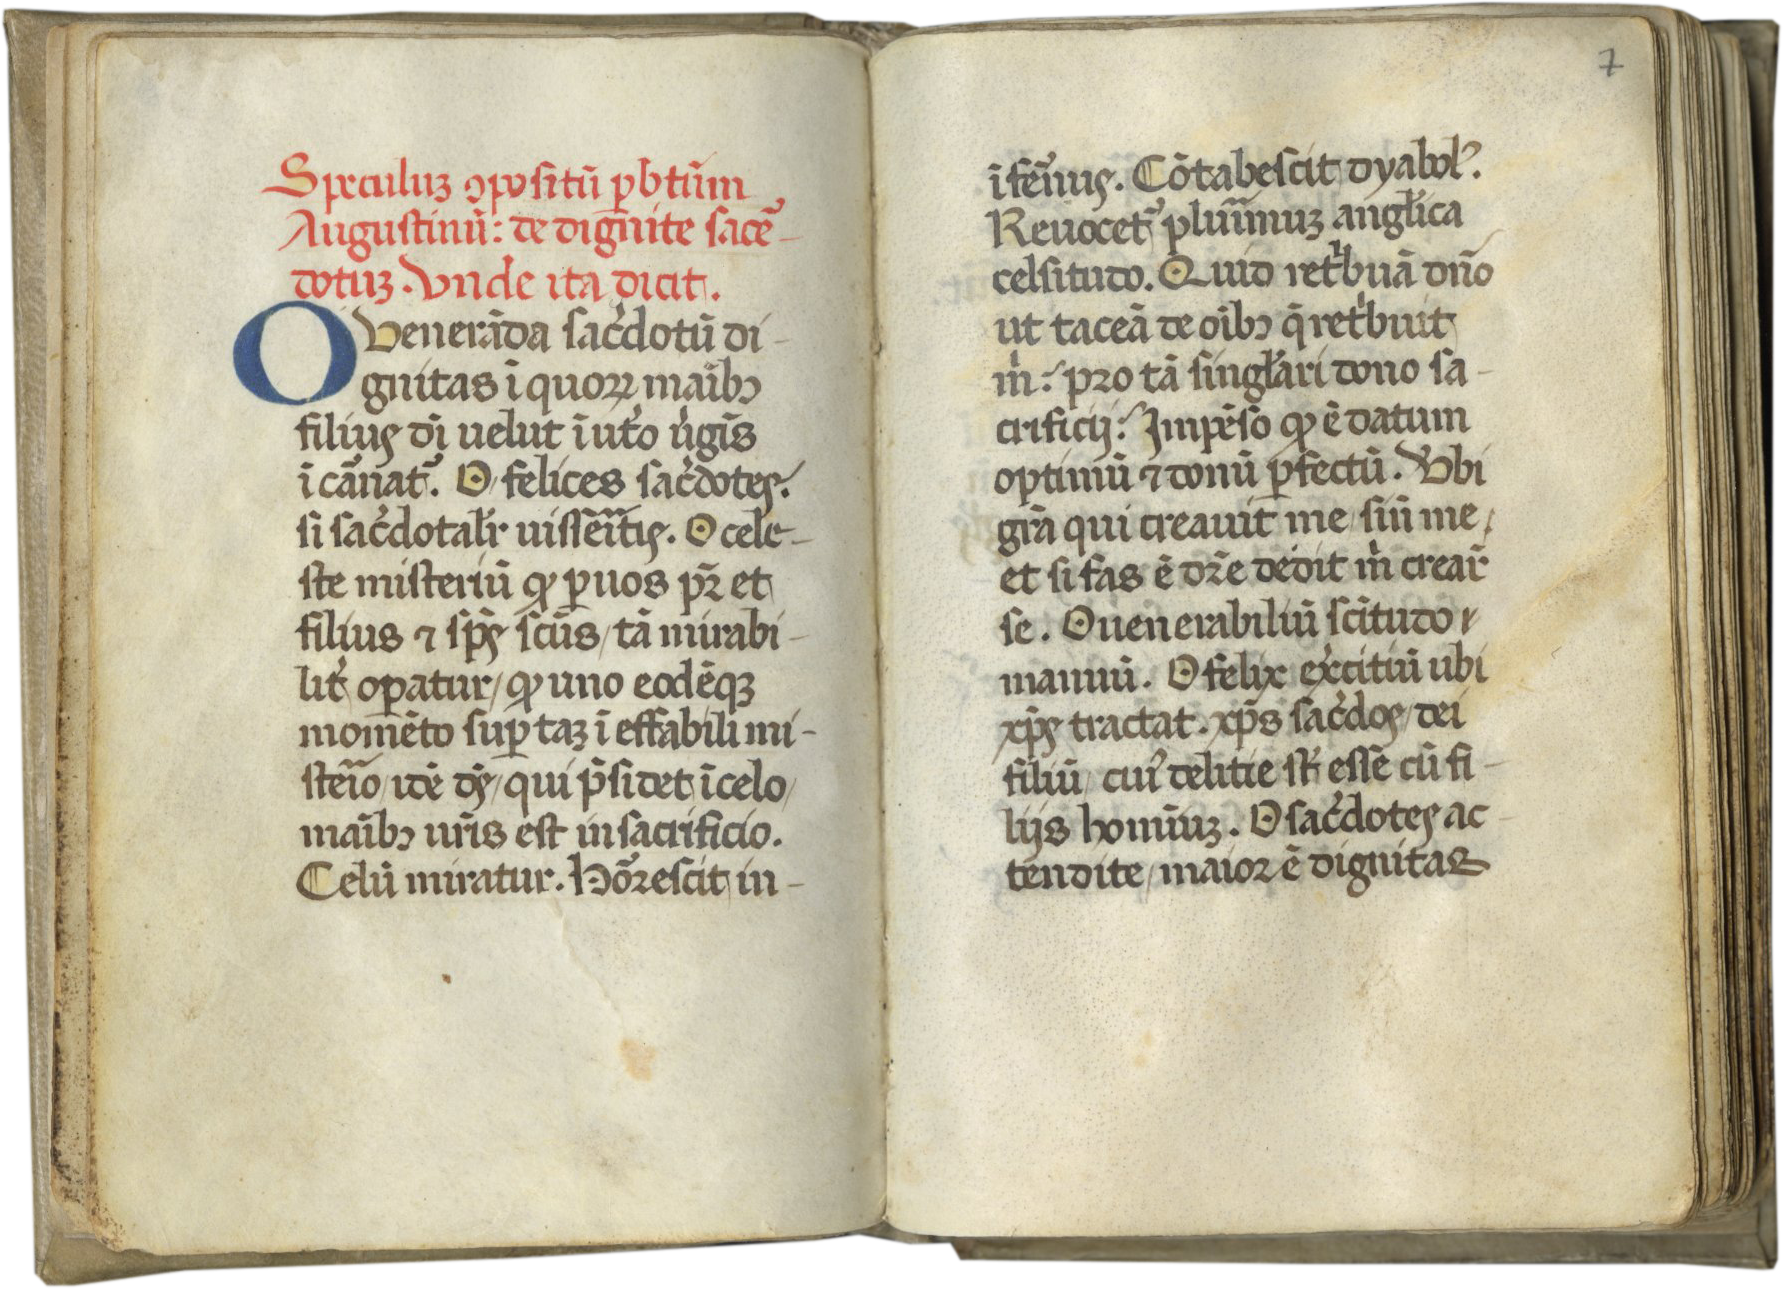 Speculuꝫ ꝯpositū p̱bt̄um
Augustinū: de dign̄ite sacē-
dotuꝫ. Unde ita dicit.
O Venerāda sac̓dotū di-
gnitas ī quoꝝ maībꝰ
filius dī uelut ī ut̓o u̓gīs
īcānat᷑. O felices sac̓dotes.
si sac̓dotalr̄ uissēītis. O cele-
ste misteriū ꝙ ꝑ uos pr̄ et
filius ⁊ sp̄s sc̄us / tā mirabi-
lit̓ oꝑatur / ꝙ uno eodēqꝫ
momēto suꝑ taꝫ ī effabili mi-
steīo / idē ds̄ / qui p̄sidet ī celo /
maībꝰ ur̄is est in sacrificio.
Celū miratur. Hōrescit in-
7
īfēnus. Cōtabescit dyabolꝰ.
Reuocet᷑ pluīmuꝫ angl̄ica
celsitudo. Quid retⁱbuā dn̄o
ut taceā de oībꝰ q̄ ret̓buit
m̓: pro tā singl̄ari dono sa-
crificij: Impēso ꝙ ē datum
optimū ⁊ donū ꝑfectū. Vbi
gr̄a qui creauit me / siū me /
et si fas ē dr̄e dedit m̓ crear̄
se. O uenerabiliū sc̄itudo
manuū. O felix ex̓citiū ubi
xp̄s tractat. xp̄s sac̓dos / dei
filiū / cuiꝰ delitie st̄ essē cū fi-
lijs homīuꝫ. O sac̓dotes ac-
tendite / maior ē dignitas